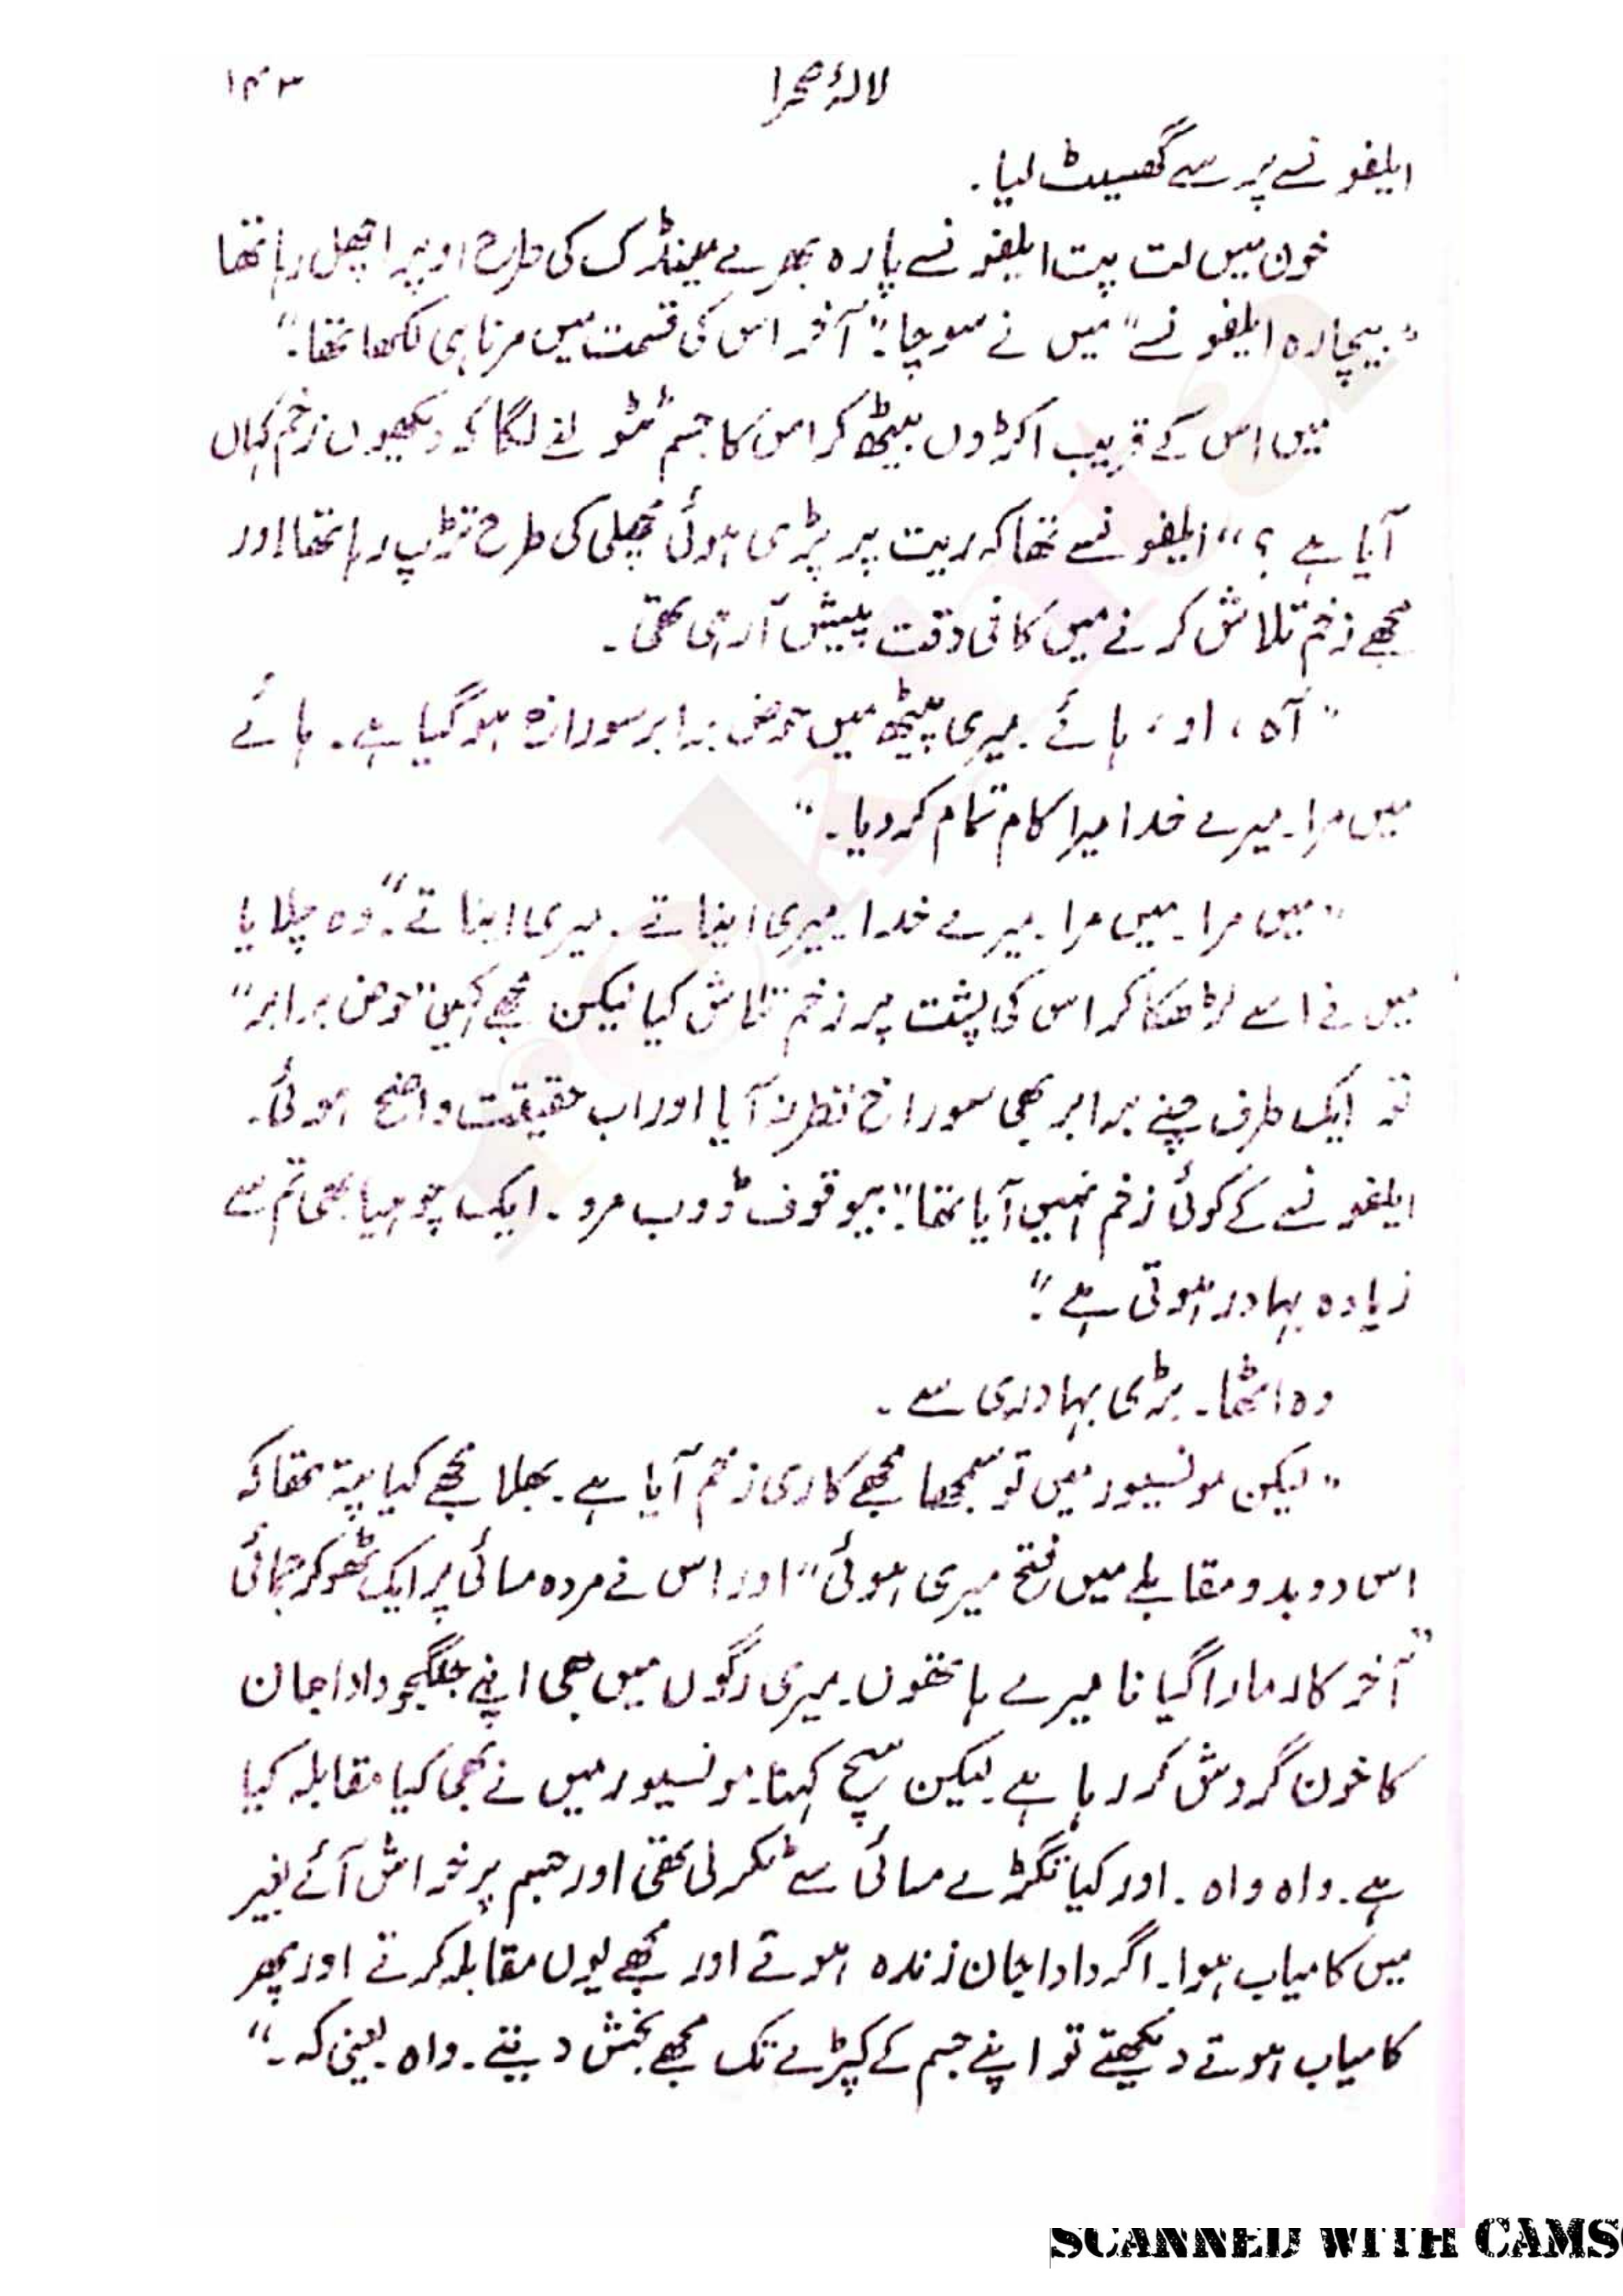 لالۂ صحرا ۱۴۳
ایلفونسے پر سے گھسیٹ لیا۔
خون میں لت پت ایلفونسے پارہ بھرے مینڈک کی طرح اوپر اچھل رہا تھا
"بیچارہ ایلفونسے" میں نے سوچا: "آخر اس کی قسمت میں مرنا ہی لکھا تھا۔"
میں اس کے قریب اکڑوں بیٹھ کر اس کا جسم ٹٹولنے لگا کہ دیکھوں زخم کہاں
آیا ہے؟" ایلفونسے تھا کہ ریت پر پڑی ہوئی مچھلی کی طرح تڑپ رہا تھا اور
مجھے زخم تلاش کرنے میں کافی دقت پیش آ رہی تھی۔
"آہ، او، ہائے۔ میری پیٹھ میں حوض برابر سوراخ ہو گیا ہے۔ ہائے
میں مرا۔ میرے خدا میرا کام تمام کر دیا۔"
"میں مرا۔ میں مرا۔ میرے خدا۔ میری اینا تے۔ میری اینا تے"۔ وہ چلایا
میں نے اسے لڑھکا کر اس کی پشت پر زخم تلاش کیا لیکن مجھے کہیں "حوض برابر"
تو ایک طرف چنے برابر بھی سوراخ نظر نہ آیا اور اب حقیقت واضح ہوئی۔
ایلفونسے کے کوئی زخم نہیں آیا تھا: "بیوقوف ڈوب مرو۔ ایک چوہیا بھی تم سے
زیادہ بہادر ہوتی ہے۔"
وہ اٹھا۔ بڑی بہادری سے۔
"لیکن مونسیور میں تو سمجھا مجھے کاری زخم آیا ہے۔ بھلا مجھے کیا پتہ تھا کہ
اس دوبدو مقابلے میں فتح میری ہوئی" اور اس نے مردہ مسائی پر ایک ٹھوکر جمائی
"آخر کار مارا گیا نا میرے ہاتھوں۔ میری رگوں میں بھی اپنے جنگجو دادا جان
کا خون گردش کر رہا ہے۔ لیکن سچ کہنا۔ مونسیور میں نے بھی کیا مقابلہ کیا
ہے۔ واہ واہ۔ اور کیا تگڑے مسائی سے ٹکر لی تھی اور جسم پر خراش آئے بغیر
میں کامیاب ہوا۔ اگر دادا جان زندہ ہوتے اور مجھے یوں مقابلہ کرتے اور پھر
کامیاب ہوتے دیکھتے تو اپنے جسم کے کپڑے تک مجھے بخش دیتے۔ واہ۔ یعنی کہ۔"
SCANNED WITH CAMS